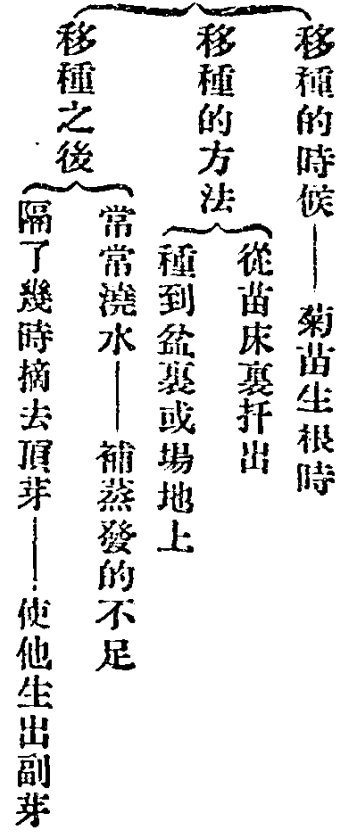 移種的時候——菊苗生根時
移種的方法
從苗床裏扦出
種到盆裏或場地上
移種之後
常常澆水——補蒸發的不足
隔了幾時摘去頂芽——使他生出副芽